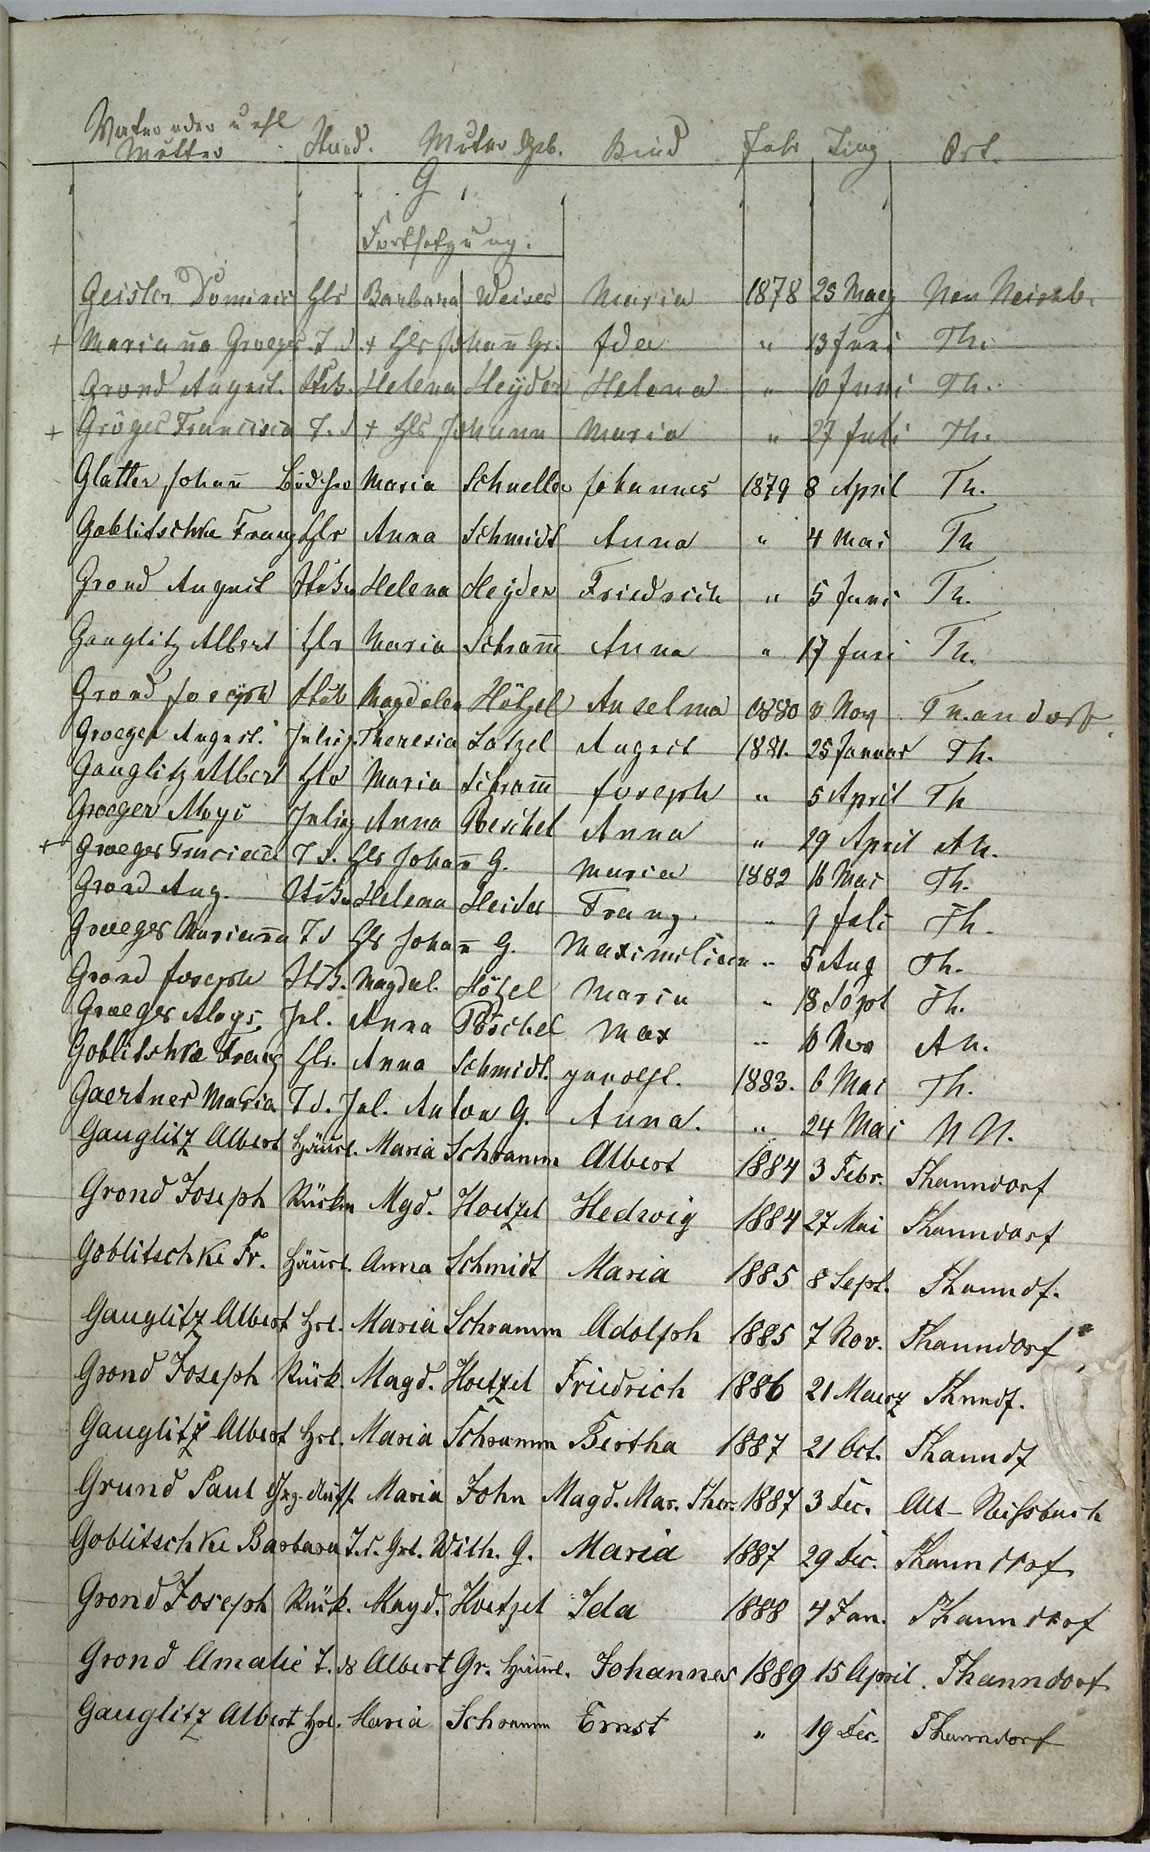 Vater oder unehl
Mutter Stand. Mutter Geb. Kind Jahr Tag Ort.
G
Fortsetzung.
Geisler Dominic Hlr Barbara Weiser Maria 1878 25 Maerz Neu Neissb.
+ Mariana Groeger T. d. + Hlr Johan̄ Gr. Ida " 13 Juni Th.
Grond August. StB. Helena Heyder Helena " 10 Juni Th.
+ Gröger Francisca T. d + Hlr Johann Maria " 27 Juli Th.
Glatter Johan̄ Maria Schneller Johannes 1879 8 April Th.
Goblitschke Franz Hlr Anna Schmidt Anna " 4 Mai Th
Grond August Helena Heyder Friedrich " 5 Juni Th.
Gauglitz Albert Hlr Maria Schram̄ Anna " 17 Juni Th.
Grond Joseph Magdalen Hötzel Anselma 1880 8 Nov Thandorf.
Groeger August. Theresia Lotzel August 1881. 25 Januar Th.
Gauglitz Albert Hlr Maria Schram̄ Joseph " 5 April Th
Groeger Aloys Anna Poeschel Anna " 29 April An.
+ Groeger T d. Hlr Johan̄ G. Maria 1882 16 Mai Th.
Grond Aug. Helena Heider Franz. " 9 Juli Th.
Groeger Marian̄a T d Hlr Johan̄ G. Maximilian " 5 Aug Th.
Grond Joseph StB. Magdal. Hötzel Maria " 18 Sept Th.
Groeger Aloys Jnl. Anna Pöschel Max " 10 Nov An.
Goblitschke Franz Hlr. Anna Schmidt. 1883. 6 Mai Th.
Gaertner Maria T d. Jnl. Anton G. Anna. " 24 Mai N N.
Gauglitz Albert Häusl. Maria Schramm Albert 1884 3 Febr. Thanndorf
Grond Joseph Mgd. Hoetzel Hedwig 1884 27 Mai Thanndorf
Goblitschke Fr. Häusl. Anna Schmidt Maria 1885 8 Sept. Thanndf.
Gauglitz Albert Hsl. Maria Schramm Adolph 1885 7 Nov. Thanndorf
Grond Joseph Rück. Magd. Hoetzel Friedrich 1886 21 Maerz Thnndf.
Gauglitz Albert Hsl. Maria Schramm Bertha 1887 21 Oct. Thanndf
Grund Paul Maria John Magd. Mar. Ther. 1887 3 Dec. Alt-Neissbach
Goblitschke Barbara T. d. Wilh. G. Maria 1887 29 Dec. Thanndorf
Grond Joseph Rück. Magd. Hoetzel Ida 1888 4 Jan. Thanndorf
Grond Amalie T. d Albert Gr. Häusl. Johannes 1889 15 April. Thanndorf
Gauglitz Albert Hsl. Maria Schramm Ernst " 19 Dec. Thanndorf